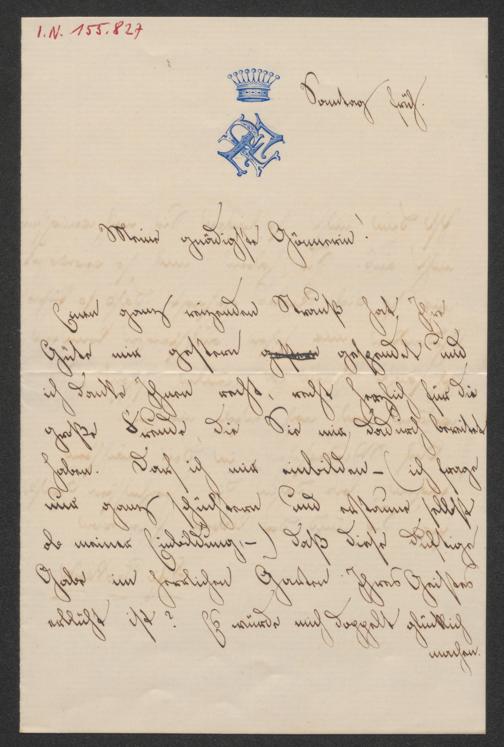 I.N. 155.827
Sonntag früh.
Meine gnädigste Gönnerin!
Einen ganz reizenden Strauß hat Ihre
Güte mir gestern gespendet und
ich danke Ihnen recht, recht herzlich für die
große Freude, die Sie mir dadurch bereitet
haben. Darf ich mir einbilden – (ich frage
nur ganz schüchtern und erstaune selbst
ob meiner Einbildung –) daß diese duftige
Gabe im herrlichen Garten Ihres Geistes
erblüht ist? Es würde mich doppelt glücklich
machen.